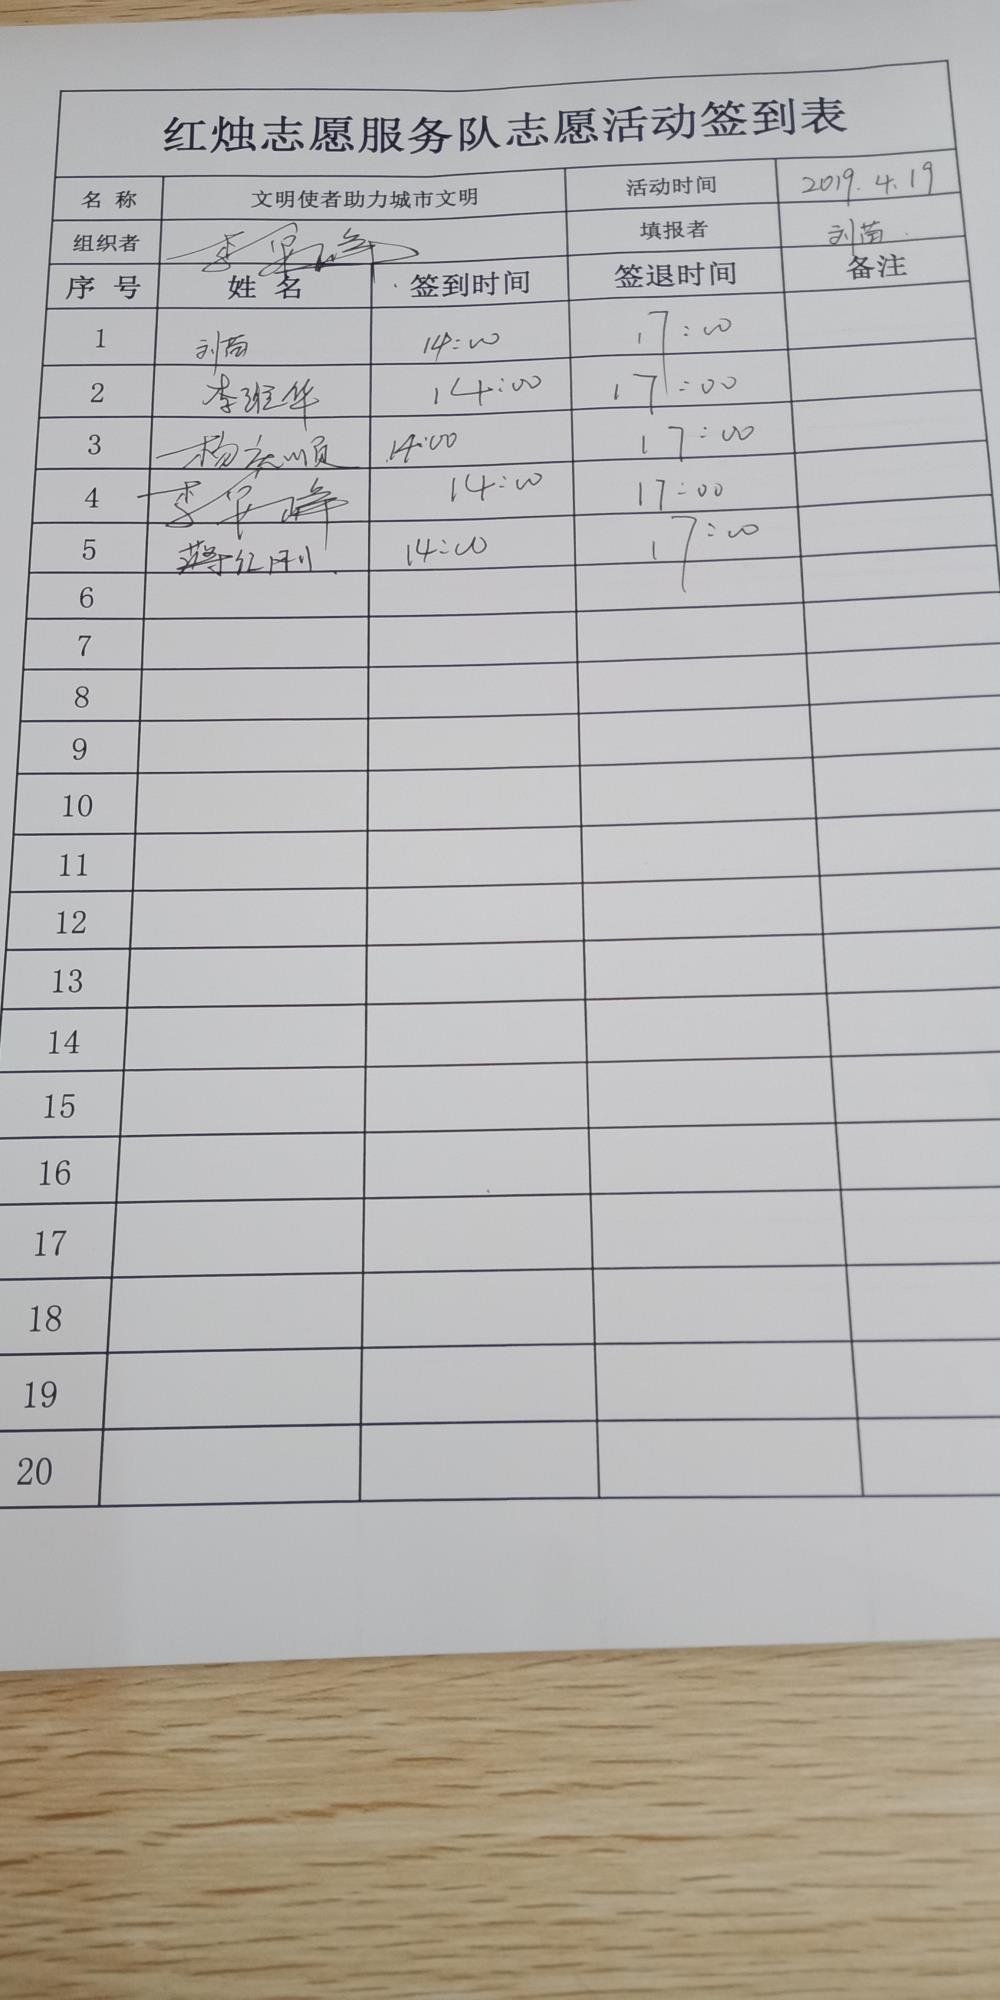 红烛志愿服务队志愿活动签到表
名 称 文明使者助力城市文明 活动时间 2019.4.19
组织者 李 峰 填报者 刘苗
序 号 姓 名 签到时间 签退时间 备注
1 刘苗 14:00 17:00
2 李班华 14:00 17:00
3 杨庆顺 14:00 17:00
4 李 峰 14:00 17:00
5 蒋红刚 14:00 17:00
6
7
8
9
10
11
12
13
14
15
16
17
18
19
20